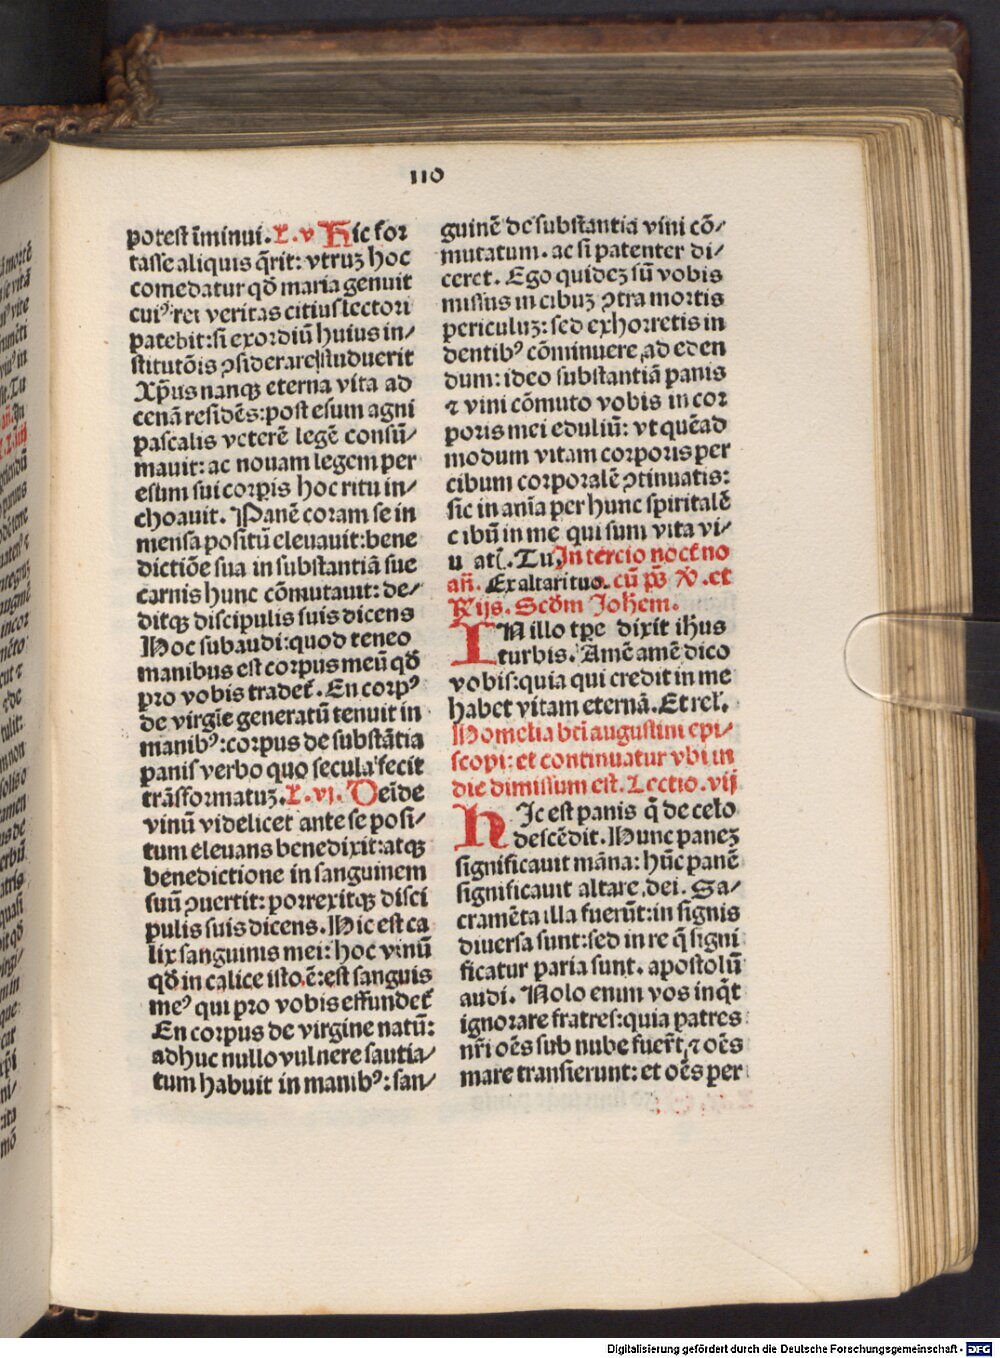 110
potest īminui. L. v Hic for
tasse aliquis q̄rit: vtruꝫ hoc
comedatur qď maria genuit
cuiꝰ rei veritas citius lectori
patebit: si exordiū huius in/
stitutōis ꝯsiderare studuerit
Xp̄us nanqꝫ eterna vita ad
cenā residēs: post esum agni
pascalis veterē legē consū/
mauit: ac nouam legem per
esum sui corꝑis hoc ritu in/
choauit. Panē coram se in
mensa positū eleuauit: bene
dictiōe sua in substantiā sue
carnis hunc cōmutauit: de/
ditqꝫ discipulis suis dicens
Hoc subaudi: quod teneo
manibus est corpus meū qď
pro vobis tradeť. En corpꝰ
de virgīe generatū tenuit in
manibꝰ: corpus de substātia
panis verbo quo secula fecit
trāsformatuꝫ. L. vj. Deīde
vinū videlicet ante se posi/
tum eleuans benedixit: atqꝫ
benedictione in sanguinem
suū ꝯuertit: porrexitqꝫ disci
pulis suis dicens. Hic est ca
lix sanguinis mei: hoc vinū
qď in calice isto ē: est sanguis
meꝰ qui pro vobis effundeť
En corpus de virgine natū:
adhuc nullo vulnere sautia/
tum habuit in manibꝰ: san/
guinē de substantia vini cō/
mutatum. ac si patenter di/
ceret. Ego quideꝫ sū vobis
missus in cibuꝫ ꝯtra mortis
periculuꝫ: sed exhorretis in
dentibꝰ cōminuere ad eden
dum: ideo substantiā panis
⁊ vini cōmuto vobis in cor
poris mei eduliū: vt quēad
modum vitam corporis per
cibum corporalē ꝯtinuatis:
sic in aīa per hunc spiritalē
cibū in me qui sum vita vi/
u atſ. Tu In tercio nocťno
añ. Ex altari tuo. cū p̄s xv. et
Rijs. Scďm Johem.
IN illo tp̄e dixit ihus
turbis. Amē amē dico
vobis: quia qui credit in me
habet vitam eternā. Et rel'.
Homelia bt̄i augustini epi/
scopi: et continuatur vbi in
die dimissum est. Lectio. vij
HIc est panis q̄ de celo
descēdit. Hunc paneꝫ
significauit māna: hūc panē
significauit altare dei. Sa/
cramēta illa fuerūt: in signis
diuersa sunt: sed in re q̄ signi
ficatur paria sunt. apostolū
audi. Nolo enim vos inq̄t
ignorare fratres: quia patres
nr̄i oēs sub nube fuerūt ⁊ oēs
mare transierunt: et oēs per
Digitalisierung gefördert durch die Deutsche Forschungsgemeinschaft - DFG